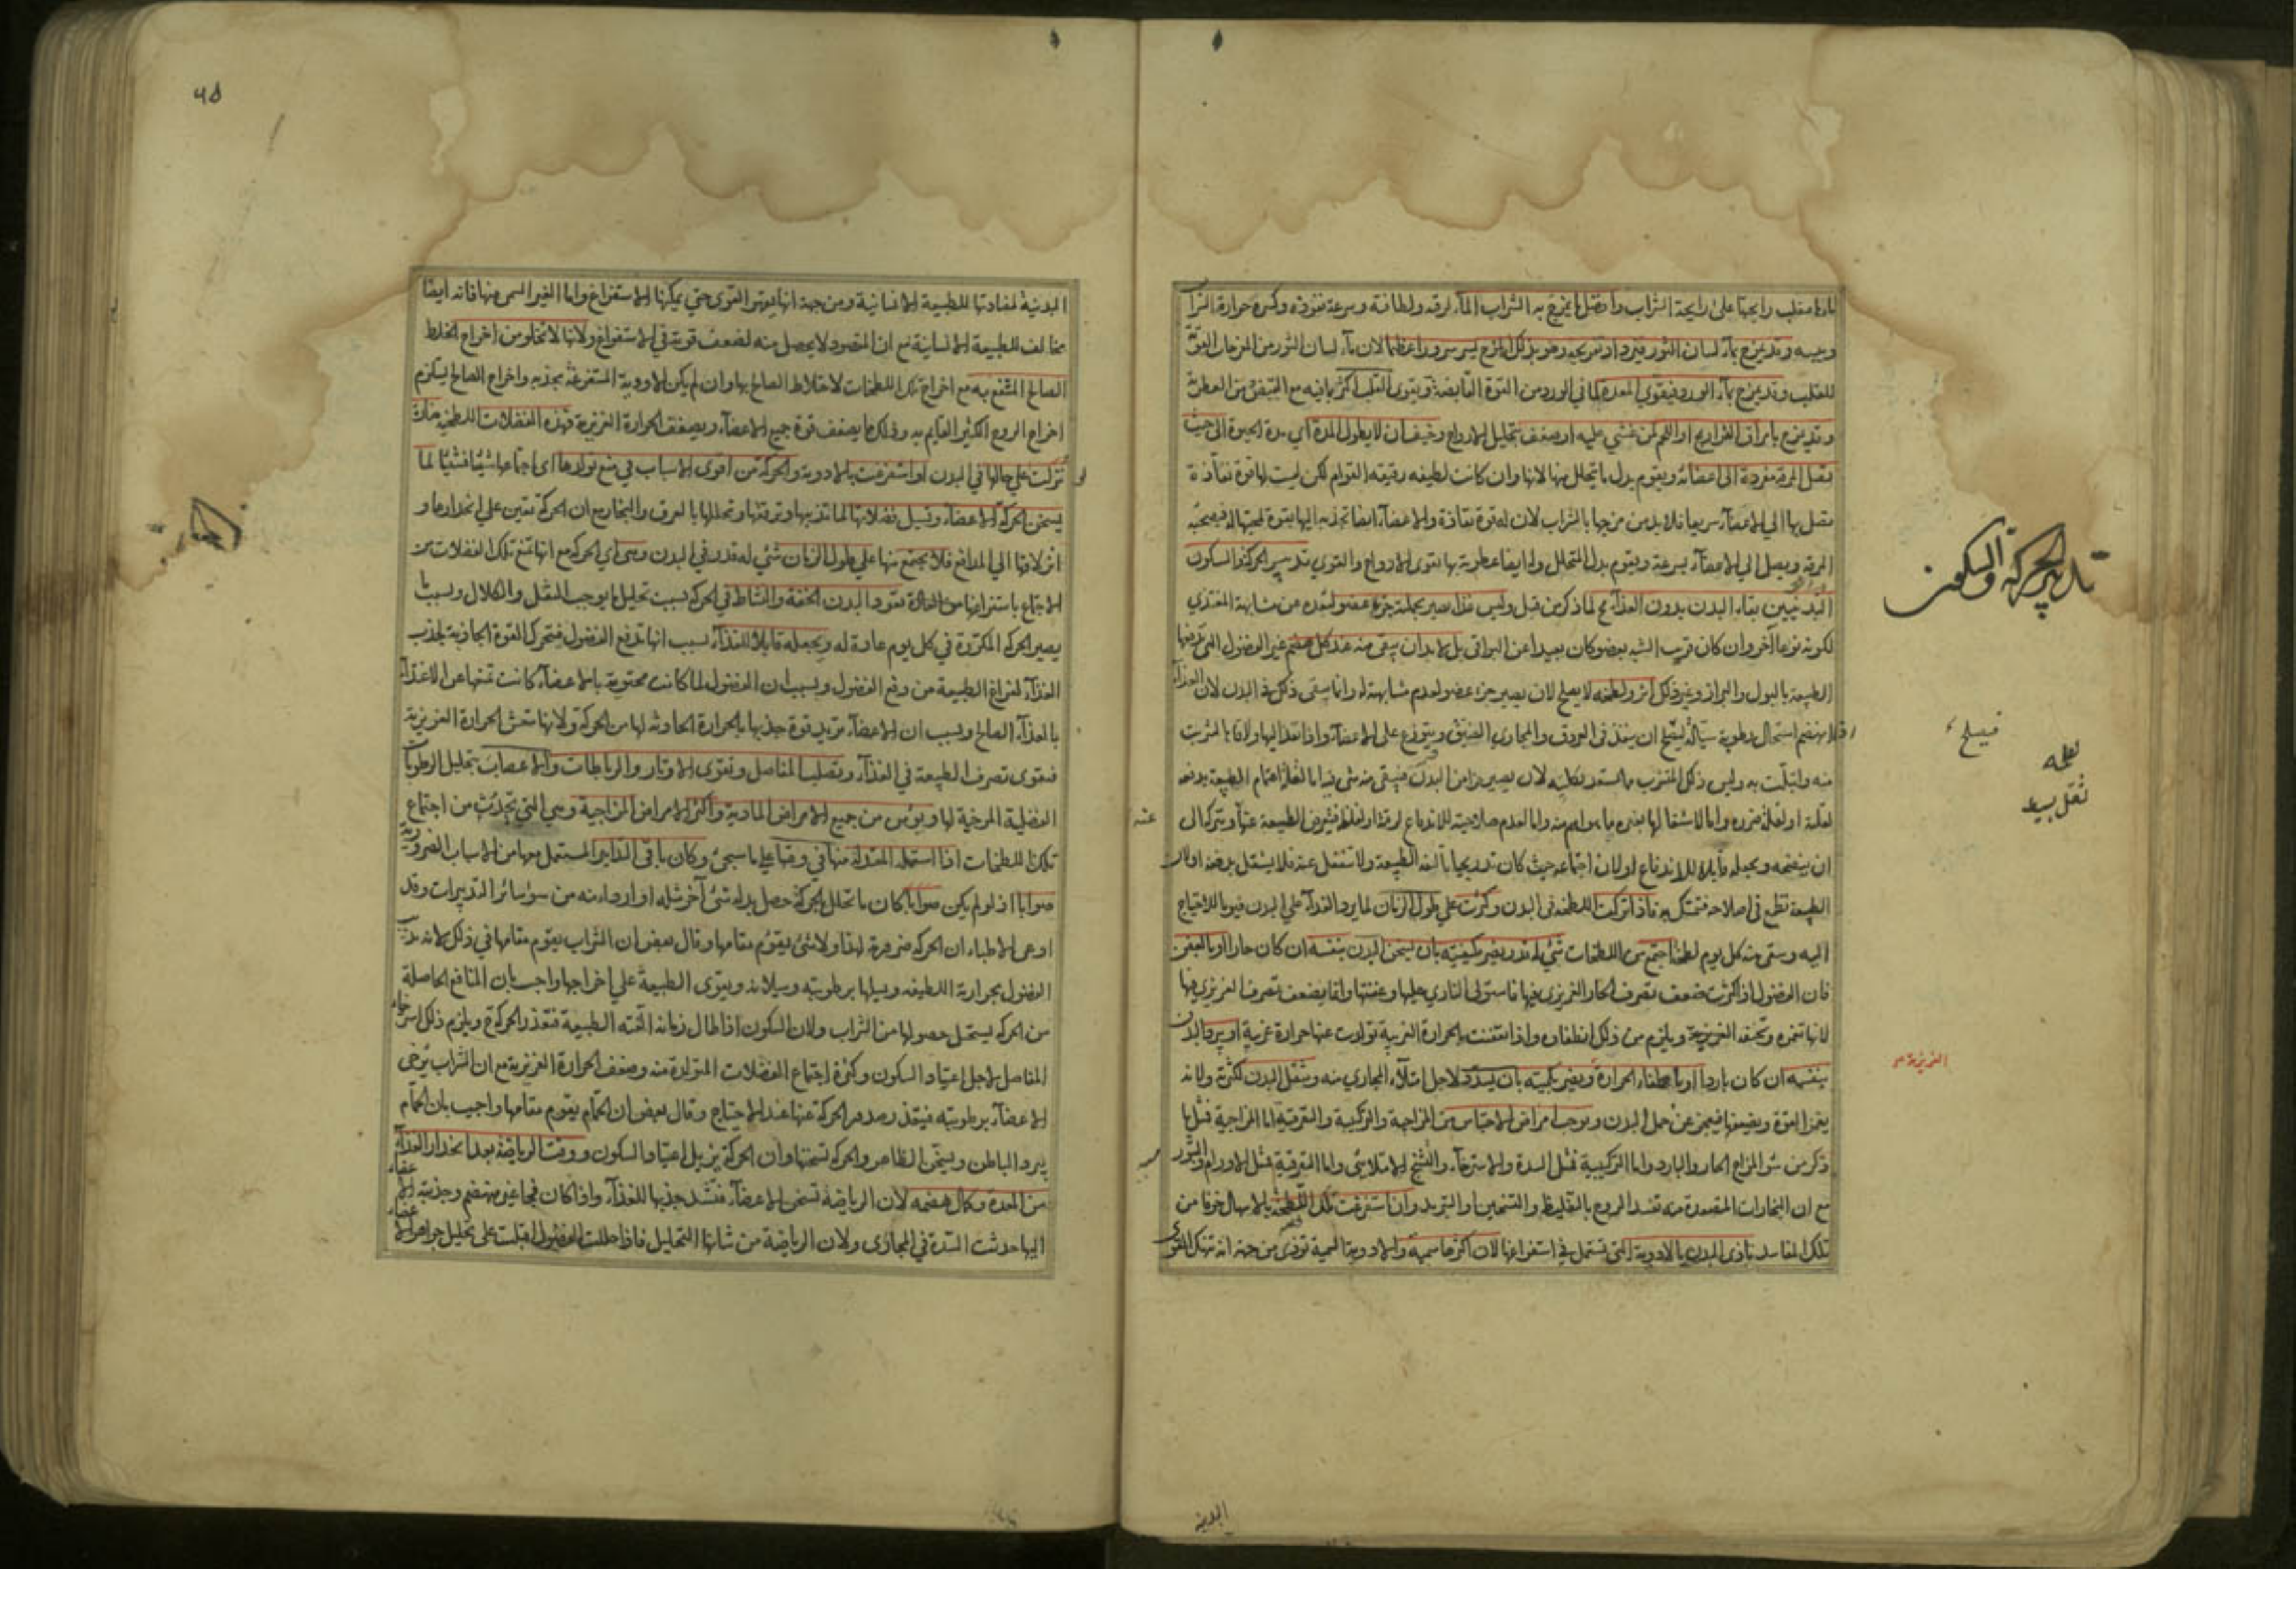 وبيسه وقد يمزج بماء لسان الثور فيزداد تفريحه وهو بذلك المزج يسر سرورا عظيما لان ماء لسان الثور من المفرحات القوية
للقلب وقد يمزج بماء الورد فيقوي المعدة لما في الورد من القوة القابضة ويقوى القلب اكثر بما فيه مع القبض من العطرية
وقد يمزج بامراق الفراريج او اللحم لمن غشي عليه او ضعف بتحليل الارواح وخيف ان لا يطول المدة اي مدة الحيوة الى حيث
تصل المرقة مفردة الى اعضائه ويقوم بدل ما يتحلل منها لانها وان كانت لطيفه رقيقه القوام لكن ليست لها قوة نفاذة
تصل بها الى الاعضاء سريعا فلا بد من مزجها بالشراب لان له قوة نفاذة والاعضاء ايضا تجذبه اليها بقوة لمحبتها له فيصحبه
المرقة ويصل الى الاعضاء بسرعة ويقوم بدل المتحلل ولها ايضا عطرية بها تقوى الارواح والقوي تدبير الحركة والسكون
تدبير الحركة والسكون
البدنيين بقاء البدن بدون الغذاء مح لما ذكر من قبل وليس غذاء يصير بجملته جزء عضو لبعده عن مشابهة المغتذي
لكونه نوعا آخر وان كان قريب الشبه بعضو كان بعيدا عن البواقى بل لا بد ان يبقى منه عند كل هضم غير الفضول التى تدفعها
الطبيعة بالبول والبراز وغير ذلك اثر ولطخه لا يصلح لان يصير جزء عضو لعدم مشابهته له وانما يبقى ذلك فى البدن لان الغذاء
اذا انهضم استحال رطوبة سيالة ليصلح ان ينفذ فى العروق والمجاري الضيقة ويتوزع على الاعضاء واذا نفذ اليها ولاقاها تشربت
فيصلح
منه وابتلت به وليس ذلك المتشرب
لقلته او لقلة ضرره واما لاشتغالها بغيره مما هو اهم منه واما لعدم صلاحيته للاندفاع لرقته او لغلظه فيعرض الطبيعة عنه ويترك الى
عنه
ان ينضجه ويجعله قابلا للاندفاع او لان اجتماعه حيث كان تدريجيا تألفه الطبيعة ولا تنفعل عنه فلا يشتغل بدفعه او لان
الطبيعة تطمع فى اصلاحه فتمسك به فاذا تركت اللطخه فى البدن وكثرت على طول الزمان لما يرد الغذاء على البدن فيوما للاحتياج
اليه ويبقى منه كل يوم لطخة اجتمع من اللطخات شئ له قدر يضر بكيفيته بان يسخن البدن بنفسه ان كان حارا او بالعفن
فان الفضول اذا كثرت ضعف تصرف الحار الغريزي فيها فاستولى الناري عليها وعفنها وانما يضعف تصرف الغريزي فيها
لانها تغمره وتخنقه ويلزم من ذلك انطفاؤه واذا تعفنت بالحرارة الغريبة تولدت عنها حرارة غريبة او يبرد البدن
الغريزية
بنفسه ان كان باردا او باطفاء الحرارة ويضر بكميته بان يسدد لاجل امتلاء المجاري منه ويثقل البدن لكثرته ولانه
يغمر القوة ويضعفها فيعجز عن حمل البدن ويوجب امراض الاحتباس من المزاجية والتركيبية والتفرقية اما المزاجية فمثل ما
ذكر من سوء المزاج الحار والبارد واما التركيبية فمثل السدة والاسترخاء والتشنج الامتلائي واما التفرقية فمثل الاورام والبثور
مع ان البخارات المتصعدة منه تفسد الروح بالتغليظ والتسخين او التبريد وان استفرغت تلك اللطخه بالاسهال خوفا من
تلك المفاسد تأذى البدن بالادوية التى تستعمل فى استفراغها لان اكثرها سمية والادوية السمية تؤذى من جهة انه تنهك القوى
البدنية
٦٥
البدنية لمضادتها للطبيعة الانسانية ومن جهة انها يقهر القوى حتي يمكنها الاستفراغ واما الغير السمي منها فانه ايضا
مخالف للطبيعة الانسانية مع ان المقصود لا يحصل منه لضعف قوته في الاستفراغ ولانها لا تخلو من اخراج الخلط
الصالح المنتفع به مع اخراج تلك اللطخات لاختلاط الصالح بها وان لم يكن الادوية المستفرغة تجذبه واخراج الصالح يستلزم
اخراج الروح الكثير القايم به وذلك مما يضعف قوة جميع الاعضاء ويضعف الحرارة الغريزية فهذه الفضلات اللطخية ضارة
تركت على حالها في البدن او استفرغت بالادوية والحركة من اقوى الاسباب في منع تولدها اى اجتماعها شيئا فشيئا لما
يسخن الحركة الاعضاء وتسيل فضلاتها لما تذيبها وترققها وتحللها بالعرق والبخار مع ان الحركة تعين على انحدارها و
انزلاقها الى المدافع فلا يجتمع منها على طول الزمان شئ له قدر في البدن وهي اي الحركة مع انها تمنع تلك الفضلات من
الاجتماع باستفراغها تعود البدن الخفة والنشاط في الحركة بسبب تحليل ما يوجب الثقل والكلال وبسبب ما
يصير الحركة المكررة في كل يوم عادة له ويجعله قابلا للغذاء بسبب انها تدفع الفضول فيتحرك القوة الجاذبة لجذب
الغذاء لفراغ الطبيعة من دفع الفضول وبسبب ان الفضول لما كانت محتوية بالاعضاء كانت تمنعها عن الاغتذاء
بالغذاء الصالح وبسبب ان الاعضاء تزيد قوة جذبها بالحرارة الحادثة لها من الحركة ولانها تنعش الحرارة الغريزية
فيقوى تصرف الطبيعة في الغذاء ويصلب المفاصل ويقوى الاوتار والرباطات والاعصاب بتحليل الرطوبات
الفضلية المرخية لها ويؤمن من جميع الامراض المادية واكثر الامراض المزاجية وهي التي تحدث من اجتماع
تلك اللطخات اذا استعمل المعتدلة منها في وقتها على ما سيجئ وكان باقى التدابير المستعمل معها من الاسباب الضرورية
صوابا اذ لو لم يكن صوابا كان ما تحلل بالحركة حصل بدله شئ آخر مثله او اردأ منه من سوء سائر التدبيرات وقد
اوعى الاطباء ان الحركة ضرورية لهذا ولا شئ يقوم مقامها وقال بعض ان الشراب يقوم مقامها في ذلك لانه يذيب
الفضول بحرارته اللطيفه ويسيلها برطوبته وسيلانه ويقوى الطبيعة على اخراجها واجيب بان المنافع الحاصلة
من الحركة يستحيل حصولها من الشراب ولان السكون اذا طال زمانه الفته الطبيعة فتعذر الحركة ويلزم ذلك استرخاء
المفاصل لاجل اعتياد السكون وكثرة اجتماع الفضلات المتولدة منه وضعف الحرارة الغريزية مع ان الشراب يرخى
الاعضاء برطوبته فيتعذر صدور الحركة عنها عند الاحتياج وقال بعض ان الحمام يقوم مقامها واجيب بان الحمام
يبرد الباطن ويسخن الظاهر والحركة تسخنها وان الحركة تزيل اعتياد السكون ووقت الرياضة بعد انحدار الغذاء
من المعدة وكمال هضمه لان الرياضة تسخن الاعضاء فتشتد جذبها للغذاء واذا كان فجا غير منهضم وجذبته الاعضاء
اليها حدثت السدة في المجارى ولان الرياضة من شانها التحليل فاذا حللت الفضول اقبلت على تحليل جواهر الاعضاء